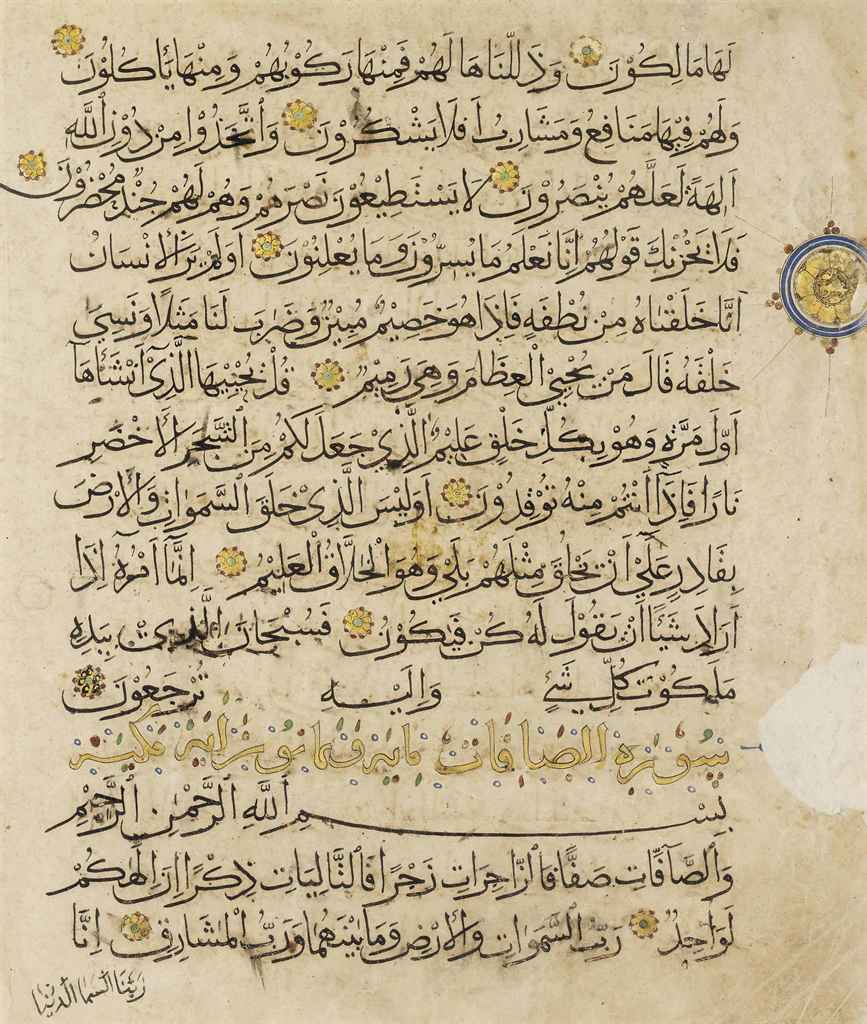 لَهَا مَالِكُوْنَ وَذَلَّلْنَاهَا لَهُمْ فَمِنْهَا رَكُوْبُهُمْ وَمِنْهَا يَأْكُلُوْنَ
وَلَهُمْ فِيْهَا مَنَافِعُ وَمَشَارِبُ أَفَلَا يَشْكُرُوْنَ وَاتَّخَذُوْا مِنْ دُوْنِ اللّٰهِ
آلِهَةً لَعَلَّهُمْ يُنْصَرُوْنَ لَا يَسْتَطِيْعُوْنَ نَصْرَهُمْ وَهُمْ لَهُمْ جُنْدٌ مُحْضَرُوْنَ
فَلَا يَحْزُنْكَ قَوْلُهُمْ اِنَّا نَعْلَمُ مَا يُسِرُّوْنَ وَمَا يُعْلِنُوْنَ اَوَلَمْ يَرَ الْاِنْسَانُ
اَنَّا خَلَقْنَاهُ مِنْ نُطْفَةٍ فَاِذَا هُوَ خَصِيْمٌ مُبِيْنٌ وَضَرَبَ لَنَا مَثَلًا وَنَسِيَ
خَلْقَهُ قَالَ مَنْ يُحْيِي الْعِظَامَ وَهِيَ رَمِيْمٌ قُلْ يُحْيِيْهَا الَّذِيْ اَنْشَاَهَا
اَوَّلَ مَرَّةٍ وَهُوَ بِكُلِّ خَلْقٍ عَلِيْمٌ الَّذِيْ جَعَلَ لَكُمْ مِنَ الشَّجَرِ الْاَخْضَرِ
نَارًا فَاِذَا اَنْتُمْ مِنْهُ تُوْقِدُوْنَ اَوَلَيْسَ الَّذِيْ خَلَقَ السَّمٰوَاتِ وَالْاَرْضَ
بِقَادِرٍ عَلٰى اَنْ يَخْلُقَ مِثْلَهُمْ بَلٰى وَهُوَ الْخَلَّاقُ الْعَلِيْمُ اِنَّمَا اَمْرُهُ اِذَا
اَرَادَ شَيْئًا اَنْ يَقُوْلَ لَهُ كُنْ فَيَكُوْنُ فَسُبْحَانَ الَّذِيْ بِيَدِهِ
مَلَكُوْتُ كُلِّ شَيْءٍ وَاِلَيْهِ تُرْجَعُوْنَ
سورة الصافات مايه وثمانون ايه مكيه
بِسْمِ اللّٰهِ الرَّحْمٰنِ الرَّحِيْمِ
وَالصَّآفَّاتِ صَفًّا فَالزَّاجِرَاتِ زَجْرًا فَالتَّالِيَاتِ ذِكْرًا اِنَّ اِلٰهَكُمْ
لَوَاحِدٌ رَبُّ السَّمٰوَاتِ وَالْاَرْضِ وَمَا بَيْنَهُمَا وَرَبُّ الْمَشَارِقِ اِنَّا
زينا السما الدنيا